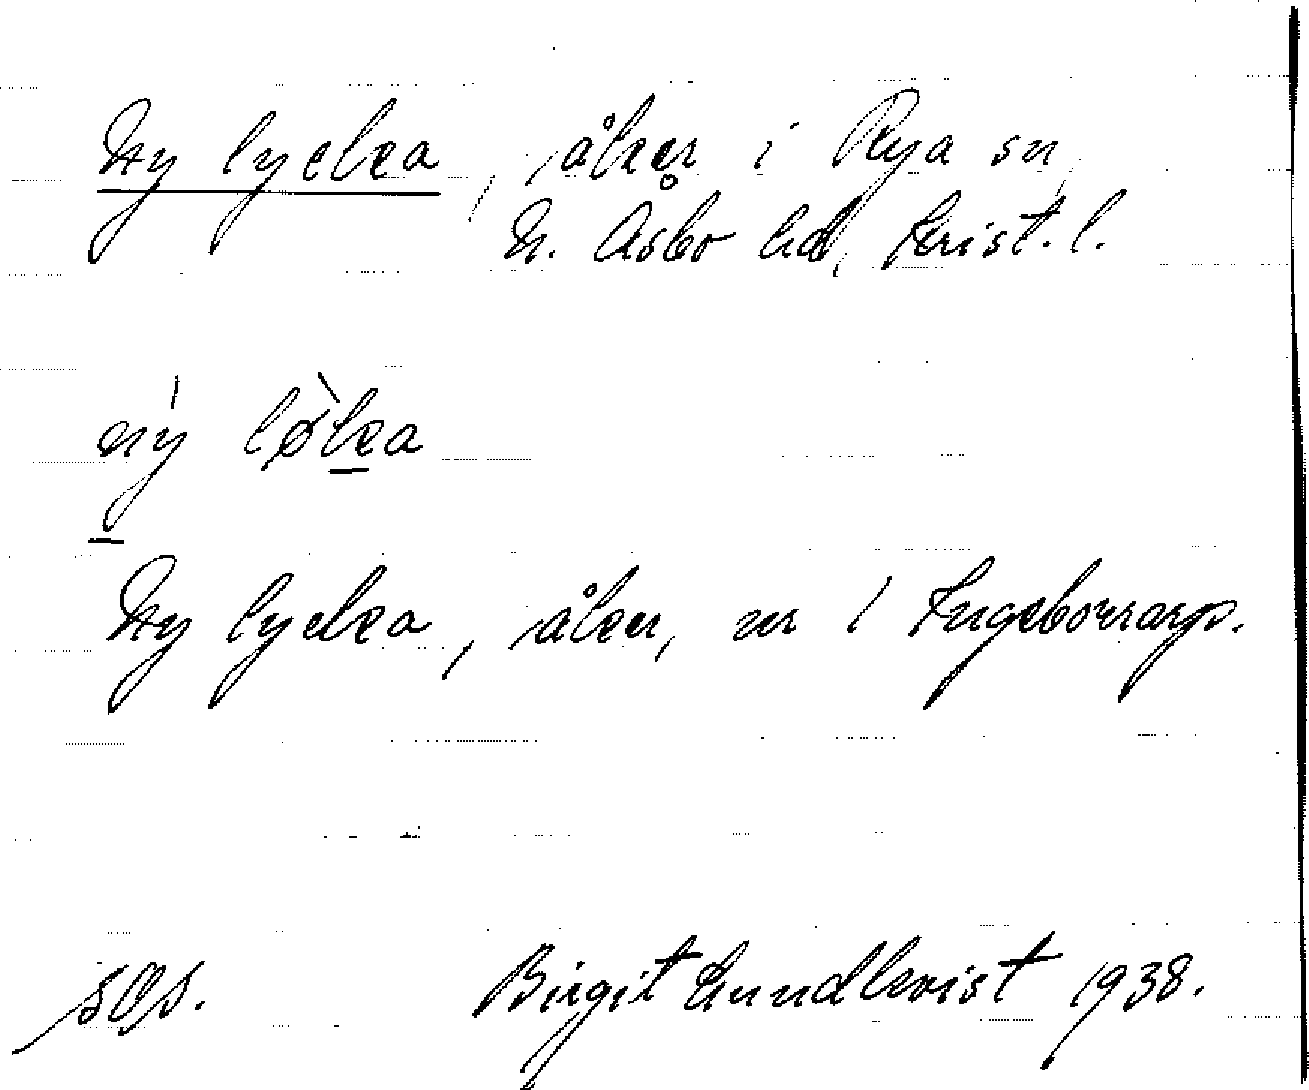 Ny lycka, åker i Rya sn,
N. Åsbo hd, Krist. l.
ný lø̀ka
Ny lycka, åker, nr 1 Ingeborrarp.
sgs.
Birgit Lundkvist 1938.